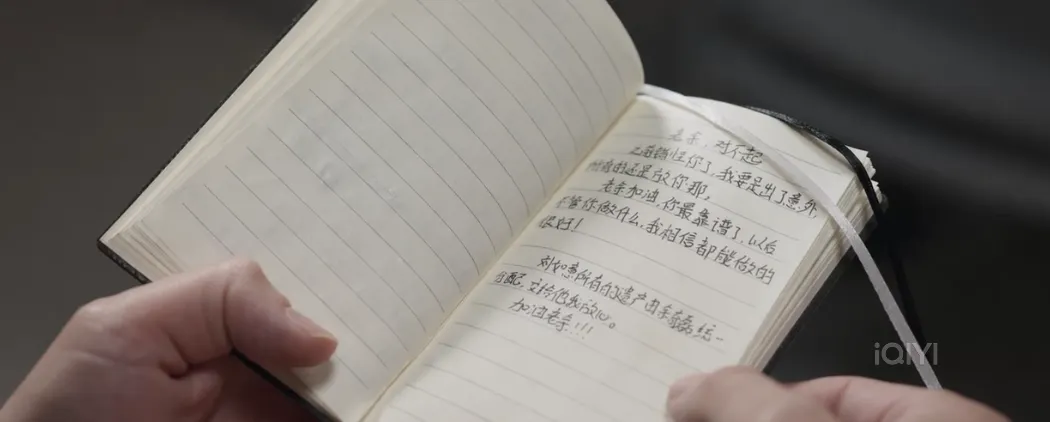 老亲，对不起
错怪你了，我要是出了意外，
还是放你那，
老亲加油，你最靠谱了，以后
不管你做什么，我相信都能做的
很好！
对如意所有的遗产由亲磊统一
分配，交给他我放心。
加油老亲!!!
iQIYI